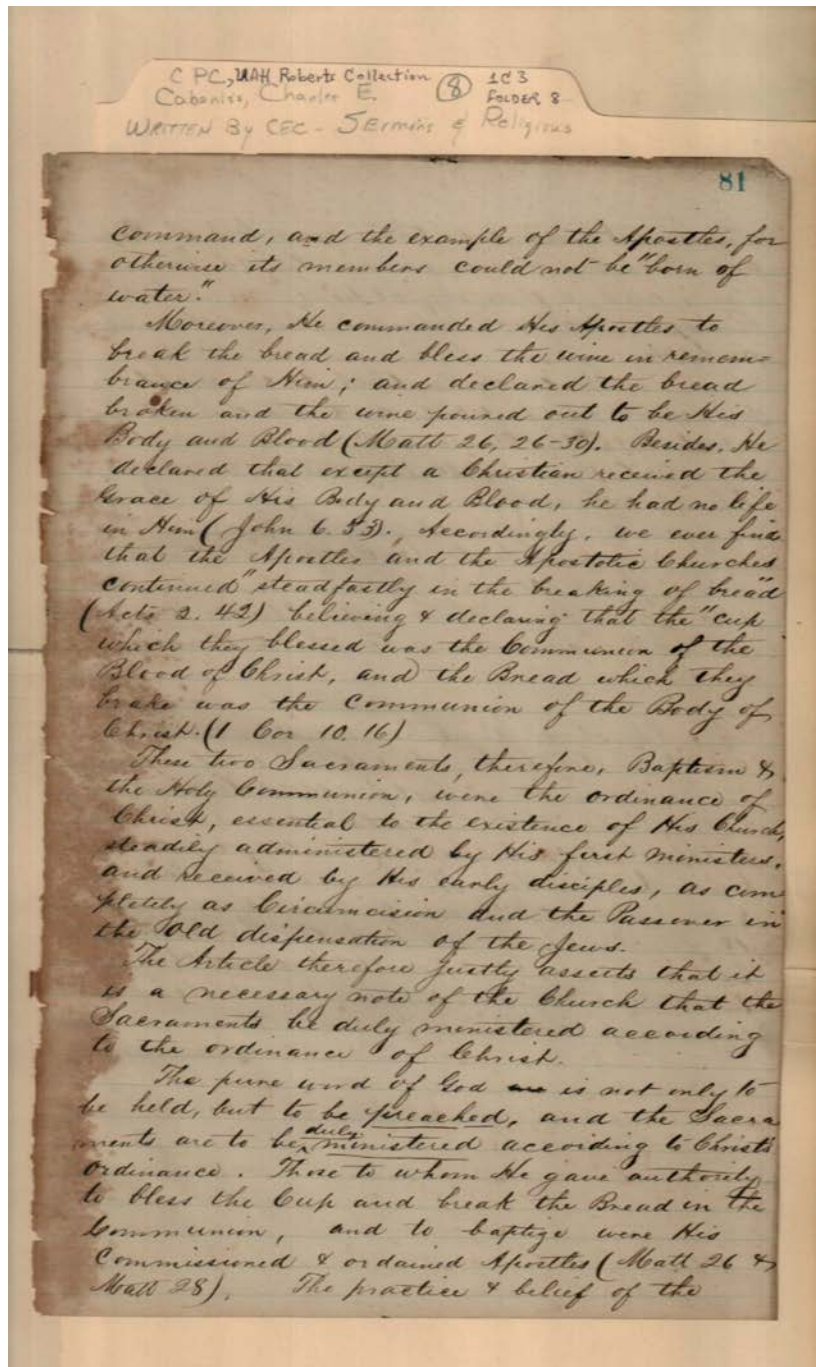 CPC, UAH Roberts Collection 8 1C3
Cabaniss, Charles E. FOLDER 8
WRITTEN By CEC - SErmons & Religious
81
command, and the example of the Apostles, for
otherwise its members could not be "born of
water."
Moreover, He commanded His Apostles to
break the bread and bless the wine in remem=
brance of Him; and declared the bread
broken and the wine poured out to be His
Body and Blood (Matt 26, 26-30). Besides, He
declared that except a Christian received the
Grace of His Body and Blood, he had no life
in Him (John 6. 53). Accordingly, we ever find
that the Apostles and the Apostolic Churches
continued "steadfastly in the breaking of bread"
(Acts 2. 42) believing & declaring that the "cup
which they blessed was the Communion of the
Blood of Christ, and the Bread which they
brake was the Communion of the Body of
Christ. (1 Cor 10. 16)
These two Sacraments, therefore, Baptism &
the Holy Communion, were the ordinance of
Christ, essential to the existence of His Church,
steadily administered by His first ministers,
and received by His early disciples, as com
pletely as Circumcision and the Passover in
the Old dispensation of the Jews.
The Article therefore justly asserts that it
is a necessary note of the Church that the
Sacraments be duly ministered according
to the ordinance of Christ.
The pure word of God are is not only to
be held, but to be preached, and the Sacra
ments are to be duly ministered according to Christ's
Ordinance. Those to whom He gave authority
to bless the Cup and break the Bread in the
Communion, and to baptize were His
Commissioned & ordained Apostles (Matt 26 &
Matt 28). The practice & belief of the